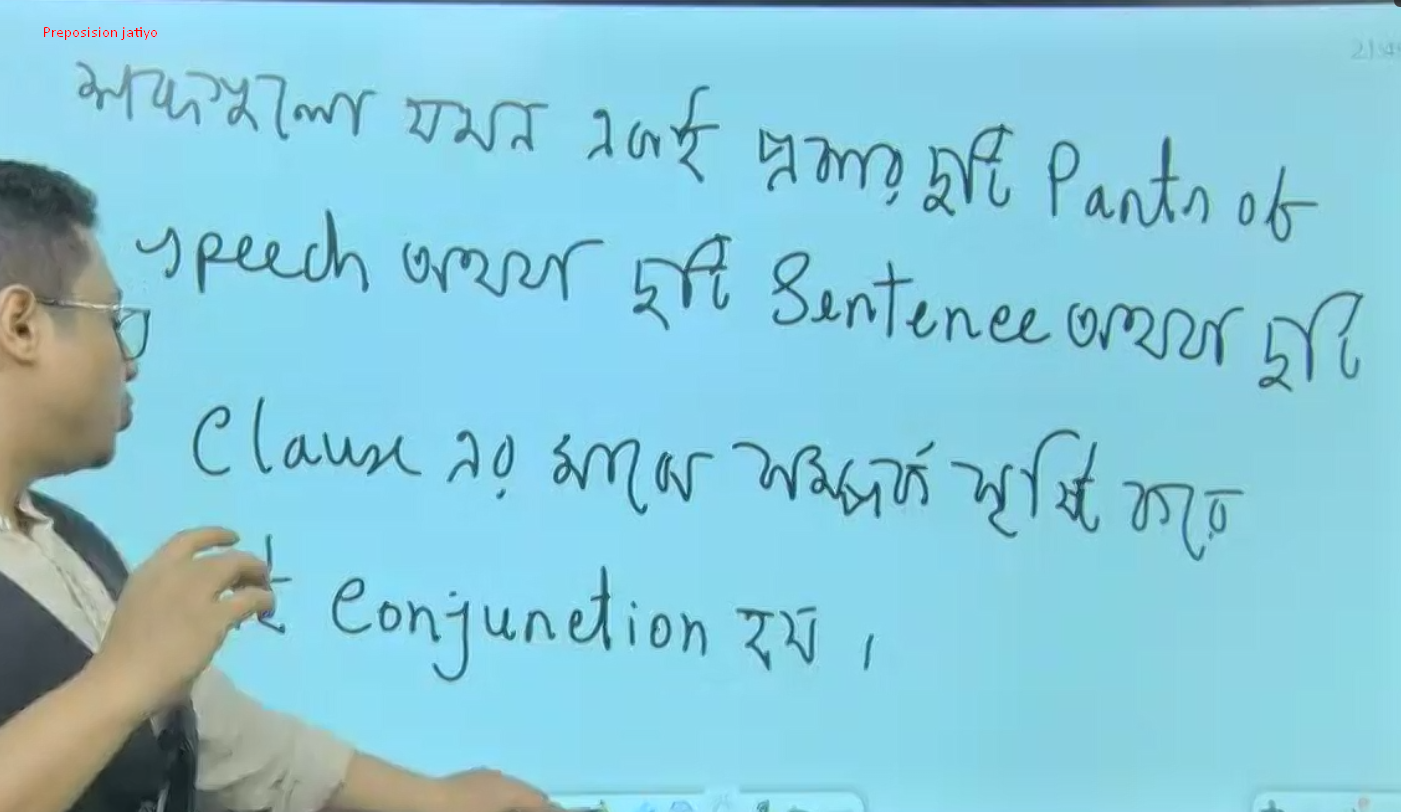 Preposision jatiyo
শব্দগুলো যখন একই প্রকার দুটি Parts of
speech অথবা দুটি Sentence অথবা দুটি
Clause এর মাঝে সম্পর্ক সৃষ্টি করে
Conjunction হয়।